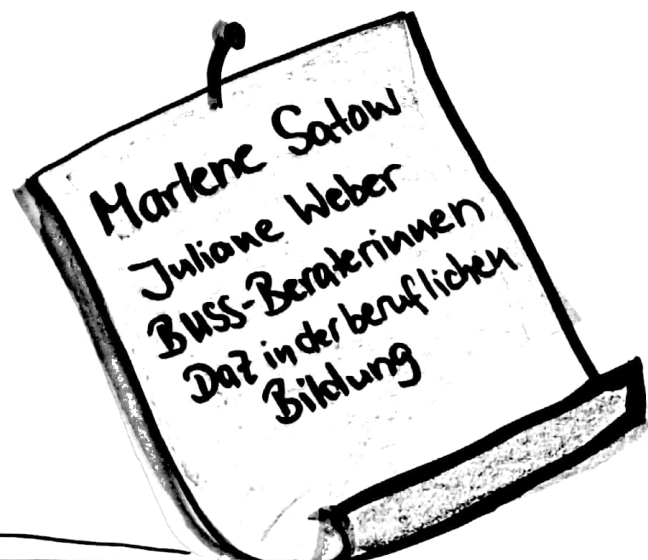 Marlene Satow
Juliane Weber
BUSS-Beraterinnen
DaZ in der beruflichen
Bildung